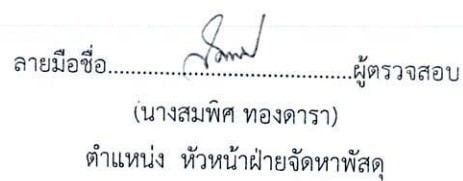 ลายมือชื่อ......................................ผู้ตรวจสอบ
(นางสมพิศ ทองดารา)
ตำแหน่ง หัวหน้าฝ่ายจัดหาพัสดุ